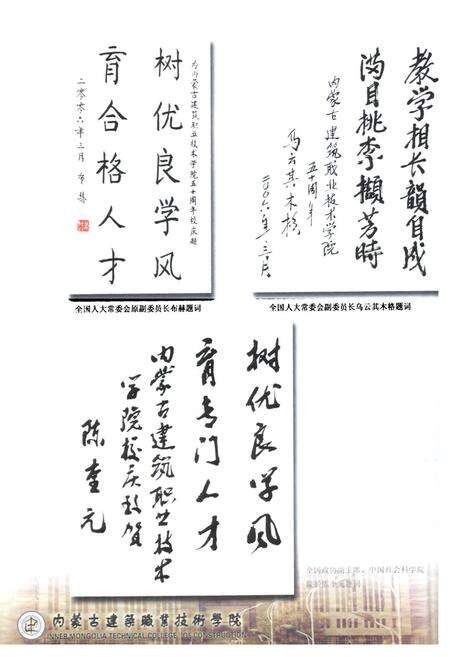 为内蒙古建筑职业技术学院五十周年校庆题
树优良学风
育合格人才
二零零六年三月 布赫
全国人大常委会原副委员长布赫题词
教学相长韻自成
满目桃李擷芳時
内蒙古建筑职业技术学院
五十周年
乌云其木格
二〇〇六年三月
全国人大常委会副委员长乌云其木格题词
树优良学风
育专门人才
内蒙古建筑职业技术
学院校庆致贺
陈奎元
全国政协副主席、中国社会科学院
院长陈奎元题词
内蒙古建築職業技術學院
INNER MONGOLIA TECHNICAL COLLEGE OF CONSTRUCTION